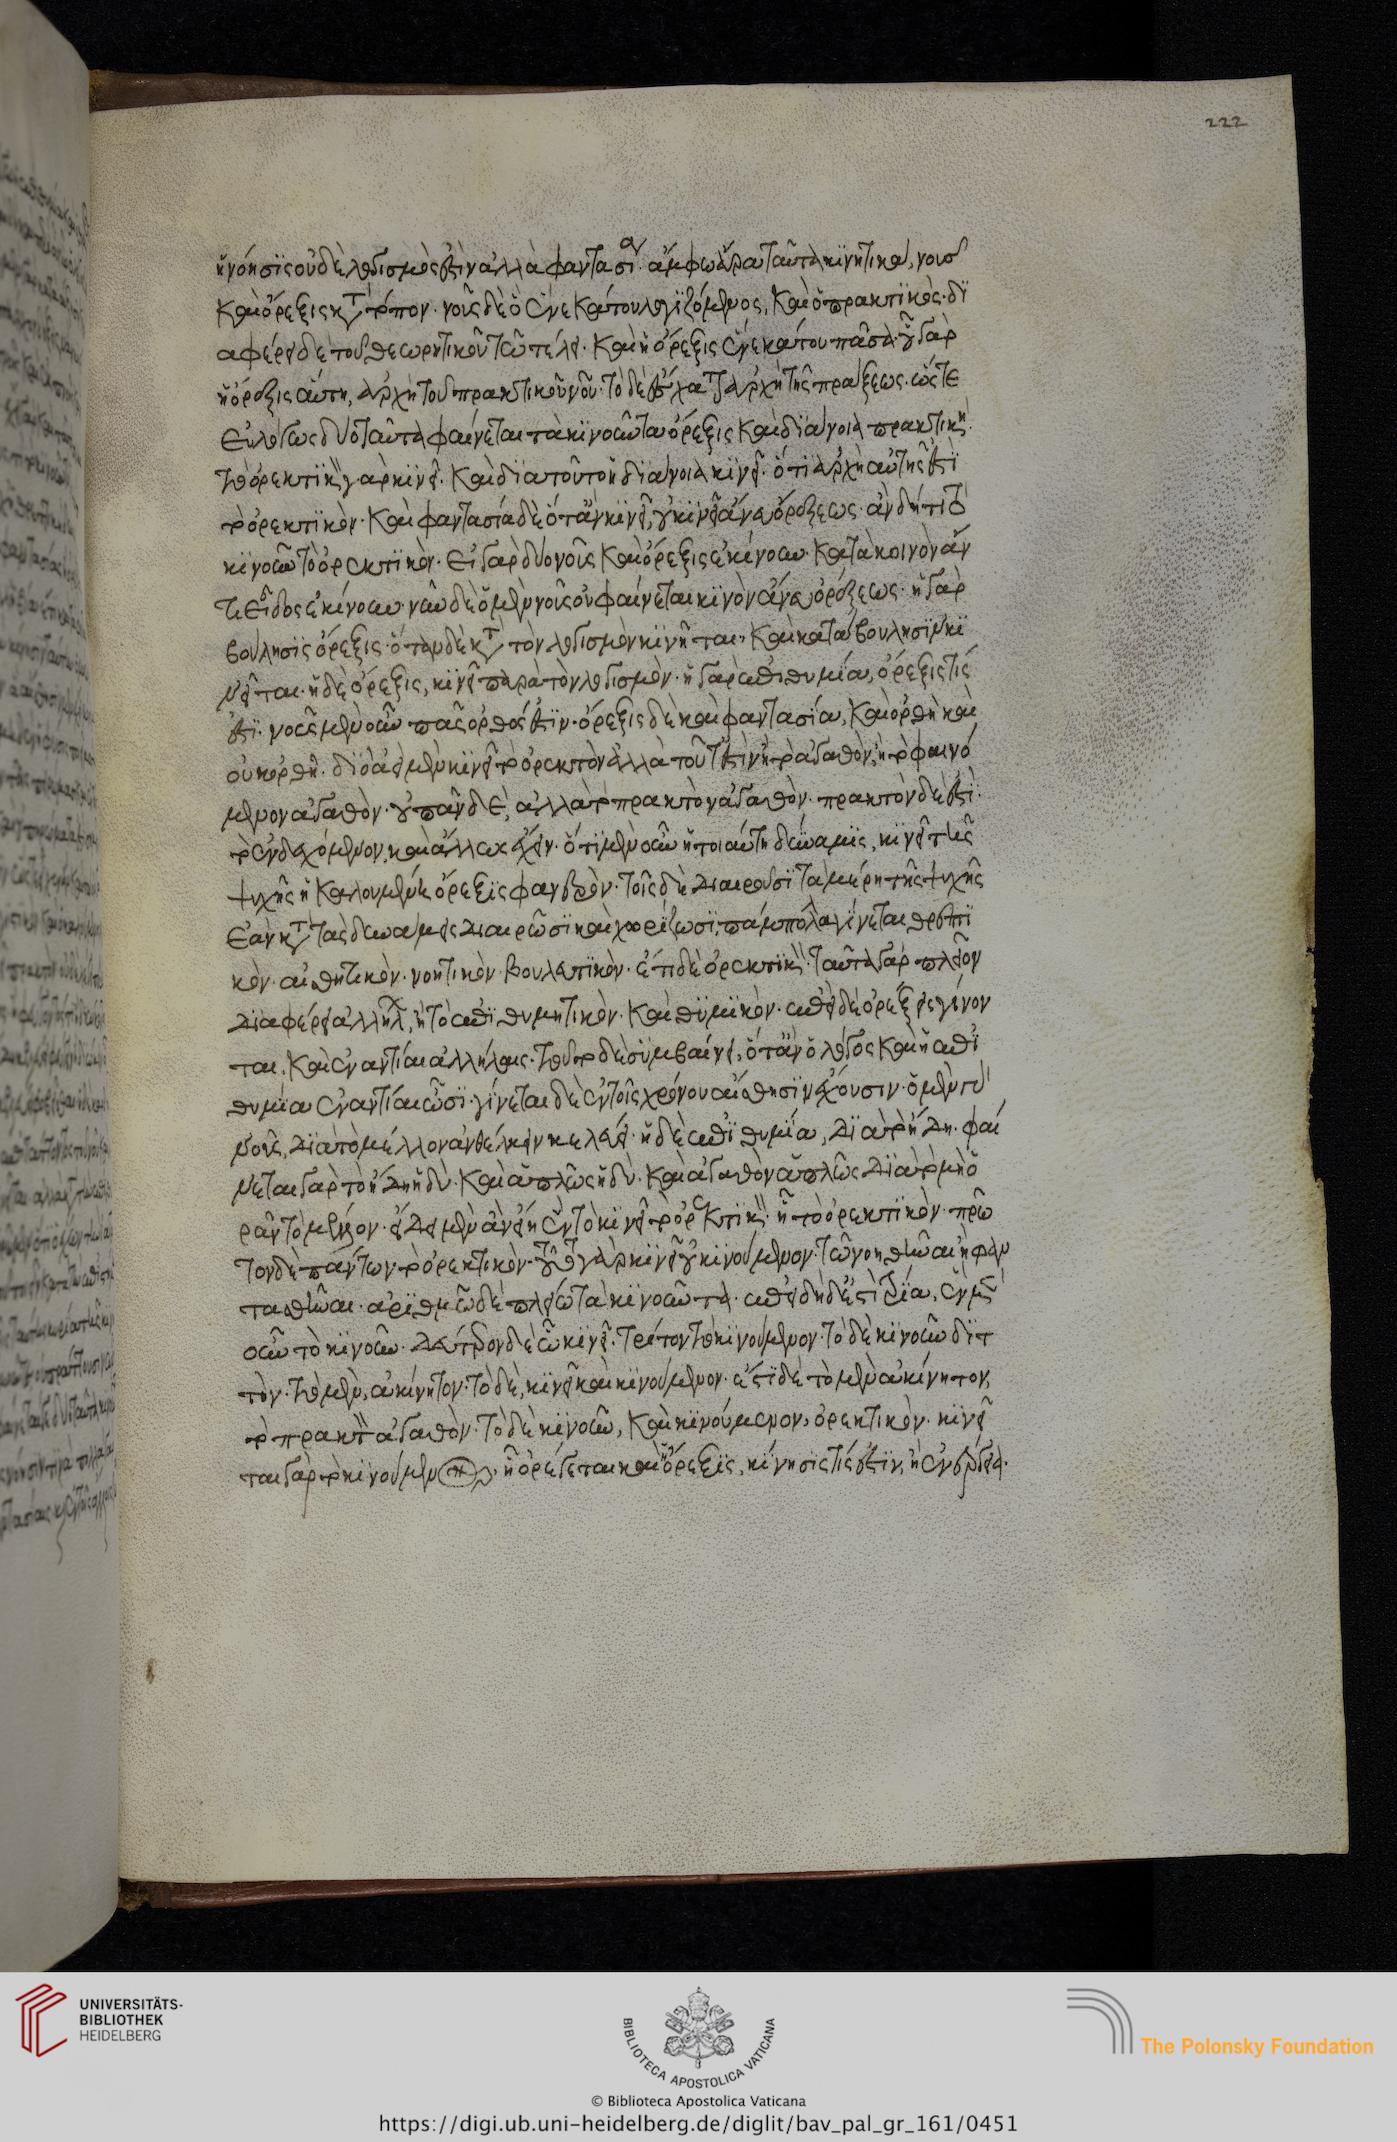 222
ἡ νόησις οὐδὲ λογισμὸς ἐστὶν ἀλλὰ φαντασία. ἄμφω ἄρα ταῦτα κινητικὰ, νοῦς
καὶ ὄρεξις κατὰ τόπον. νοῦς δὲ ὁ ἕνεκά του λογιζόμενος, καὶ ὁ πρακτικός. δι
αφέρει δὲ τοῦ θεωρητικοῦ τῶ τέλει. καὶ ἡ ὄρεξις ἕνεκά του πᾶσα. οὗ γὰρ
ἡ ὄρεξις αὕτη, ἀρχὴ τοῦ πρακτικοῦ νοῦ. τὸ δὲ ἔσχατον ἀρχὴ τῆς πράξεως. ὥστε
εὐλόγως δύο ταῦτα φαίνεται τὰ κινοῦντα ὄρεξις καὶ διάνοια πρακτική.
τὸ ὀρεκτικὸν γὰρ κινεῖ. καὶ διὰ τοῦτο ἡ διάνοια κινεῖ. ὅτι ἀρχὴ αὐτῆς ἐστὶ
τὸ ὀρεκτικόν. καὶ φαντασία δὲ ὅταν κινεῖ, οὐ κινεῖ ἄνευ ὀρέξεως. ἓν δή τι τὸ
κινοῦν τὸ ὀρεκτικόν. εἰ γὰρ δύο νοῦς καὶ ὄρεξις ἐκίνουν. κατὰ κοινὸν ἄν
τι εἶδος ἐκίνουν. νῦν δὲ ὁ μὲν νοῦς οὐ φαίνεται κινῶν ἄνευ ὀρέξεως. ἡ γὰρ
βούλησις ὄρεξις. ὅταν δὲ κατὰ τὸν λογισμὸν κινῆται. καὶ κατὰ βούλησιν κι
νεῖται. ἡ δὲ ὄρεξις, κινεῖ παρὰ τὸν λογισμόν. ἡ γὰρ ἐπιθυμία, ὄρεξις τίς
ἐστι. νοῦς μὲν οὖν πᾶς ὀρθός ἐστιν. ὄρεξις δὲ καὶ φαντασία, καὶ ὀρθὴ καὶ
οὐκ ὀρθή. διὸ ἀεὶ μὲν κινεῖ τὸ ὀρεκτὸν ἀλλὰ τοῦτ' ἐστὶν ἢ τὸ ἀγαθὸν, ἢ τὸ φαινό
μενον ἀγαθόν. οὐ πᾶν δὲ, ἀλλὰ τὸ πρακτὸν ἀγαθόν. πρακτὸν δὲ ἐστὶ.
τὸ ἐνδεχόμενον, καὶ ἄλλως ἔχειν. ὅτι μὲν οὖν ἡ τοιαύτη δύναμις, κινεῖ τῆς
ψυχῆς ἡ καλουμένη ὄρεξις φανερόν. τοῖς δὲ διαιροῦσι τὰ μέρη τῆς ψυχῆς
ἐὰν κατὰ τὰς δυνάμεις διαιρῶσι καὶ χωρίζωσι, πάμπολλα γίνεται θρεπτι
κόν. αἰσθητικόν. νοητικόν. βουλευτικόν. ἔτι δὲ ὀρεκτικόν. ταῦτα γὰρ πλέον
διαφέρει ἀλλήλων, ἢ τὸ ἐπιθυμητικόν. καὶ θυμικόν. ἐπεὶ δὲ ὀρέξεις γίνον
ται, καὶ ἐναντίαι ἀλλήλαις. τοῦτο δὲ συμβαίνει, ὅταν ὁ λόγος καὶ ἡ ἐπι
θυμία ἐναντίαι ὦσι. γίνεται δὲ ἐν τοῖς χρόνου αἴσθησιν ἔχουσιν. ὁ μὲν γὰρ
νοῦς, διὰ τὸ μέλλον ἀνθέλκειν κελεύει. ἡ δὲ ἐπιθυμία, διὰ τὸ ἤδη. φαί
νεται γὰρ τὸ ἤδη ἡδύ. καὶ ἁπλῶς ἡδύ. καὶ ἀγαθὸν ἁπλῶς διὰ τὸ μὴ ὁ
ρᾶν τὸ μέλλον. εἴδει μὲν ἂν εἴη ἓν τὸ κινεῖ τὸ ὀρεκτικόν. ἧ τὸ ὀρεκτικόν. πρῶ
τον δὲ πάντων τὸ ὀρεκτικόν. τοῦτο γὰρ κινεῖ οὐ κινούμενον. τῶ νοηθῆναι ἢ φαν
τασθῆναι. ἀριθμῶ δὲ πλείω τὰ κινοῦντα. ἐπεὶ δὴ δὲ ἐστὶ τρία, ἓν μὲν
οὖν τὸ κινοῦν. δεύτερον δὲ ὧ κινεῖ. τρίτον τὸ κινούμενον. τὸ δὲ κινοῦν διτ
τόν. τὸ μὲν, ἀκίνητον. τὸ δὲ, κινεῖ καὶ κινούμενον. ἔστι δὲ τὸ μὲν ἀκίνητον,
τὸ πρακτὸν ἀγαθόν. τὸ δὲ κινοῦν, καὶ κινούμενον, ὀρεκτικόν. κινεῖ
ται γὰρ τὸ κινούμενον. ἧ ὀρέγεται καὶ ἡ ὄρεξις, κίνησις τίς ἐστιν, ἡ ἐνεργείᾳ.
UNIVERSITÄTS-
BIBLIOTHEK
HEIDELBERG
BIBLIOTECA APOSTOLICA VATICANA
The Polonsky Foundation
© Biblioteca Apostolica Vaticana
https://digi.ub.uni-heidelberg.de/diglit/bav_pal_gr_161/0451